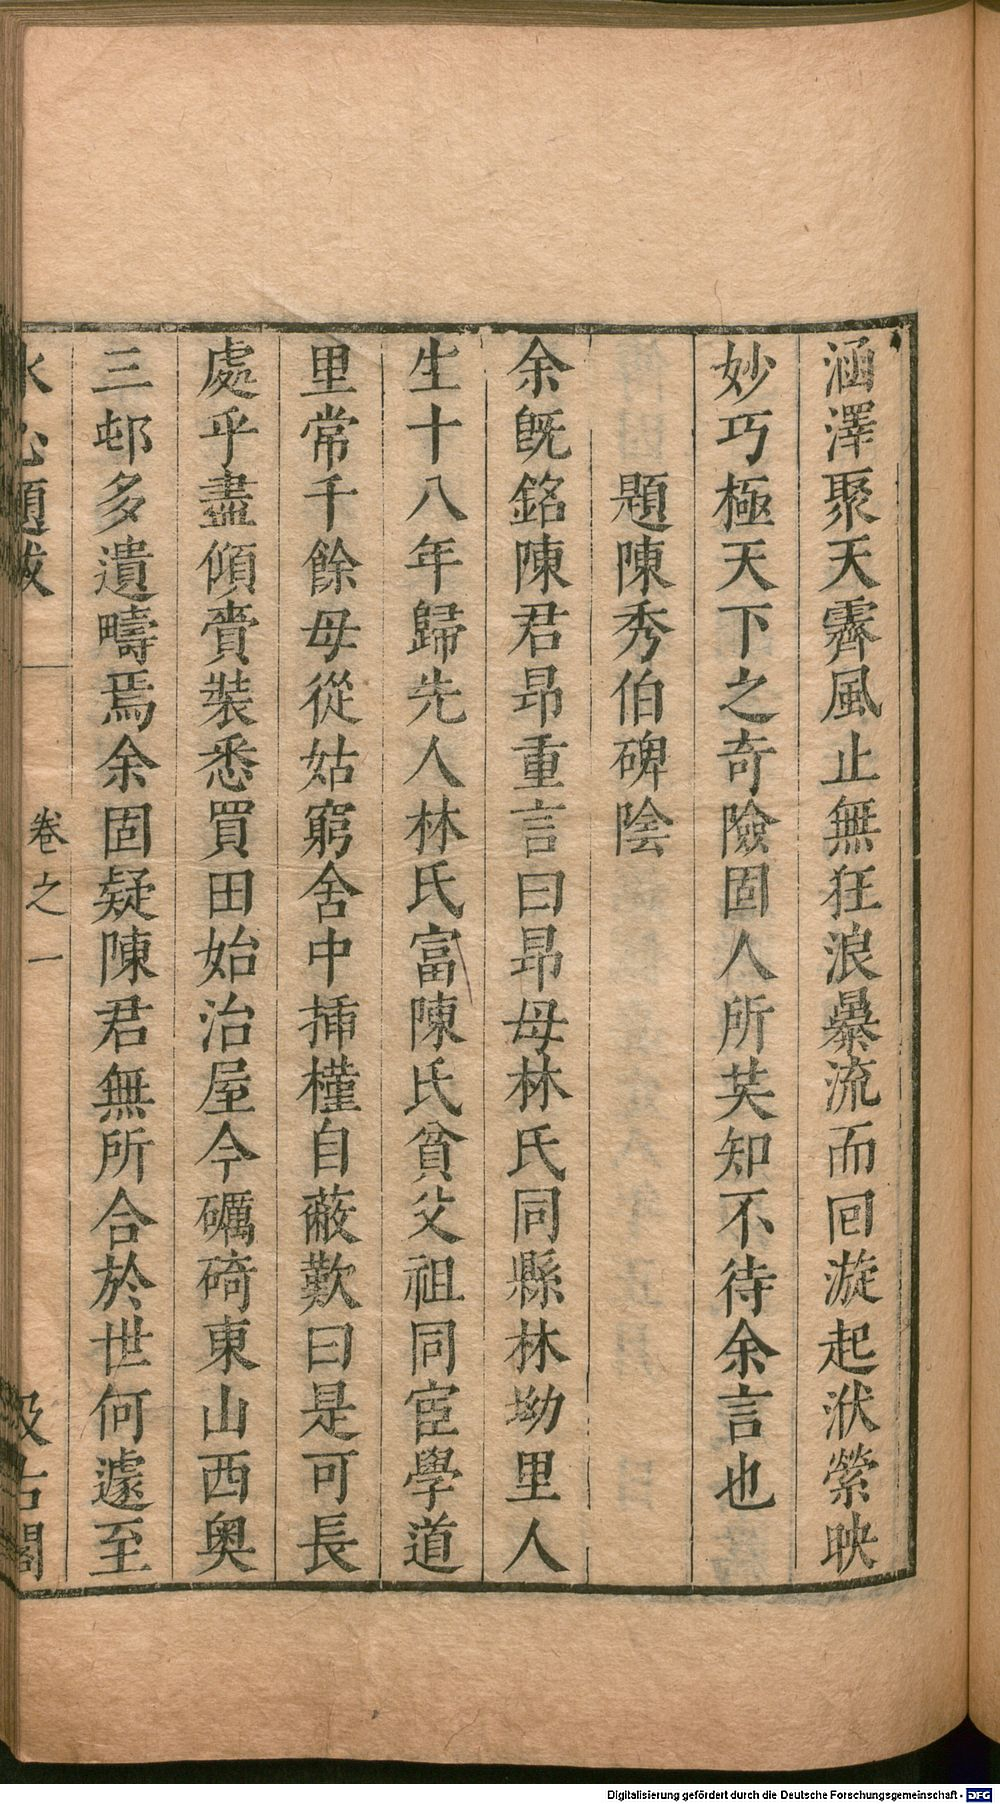 涵澤聚天霽風止無狂浪暴流而回漩起洑縈映
妙巧極天下之奇險固人所共知不待余言也
題陳秀伯碑陰
余旣銘陳君昂重言曰昂母林氏同縣林坳里人
生十八年歸先人林氏富陳氏貧父祖同宦學道
里常千餘母從姑窮舍中揷槿自蔽歎曰是可長
處乎盡傾賫裝悉買田始治屋今礪碕東山西奥
三邨多遺疇焉余固疑陳君無所合於世何遽至
水心題跋
卷之一
汲古閣
Digitalisierung gefördert durch die Deutsche Forschungsgemeinschaft - DFG